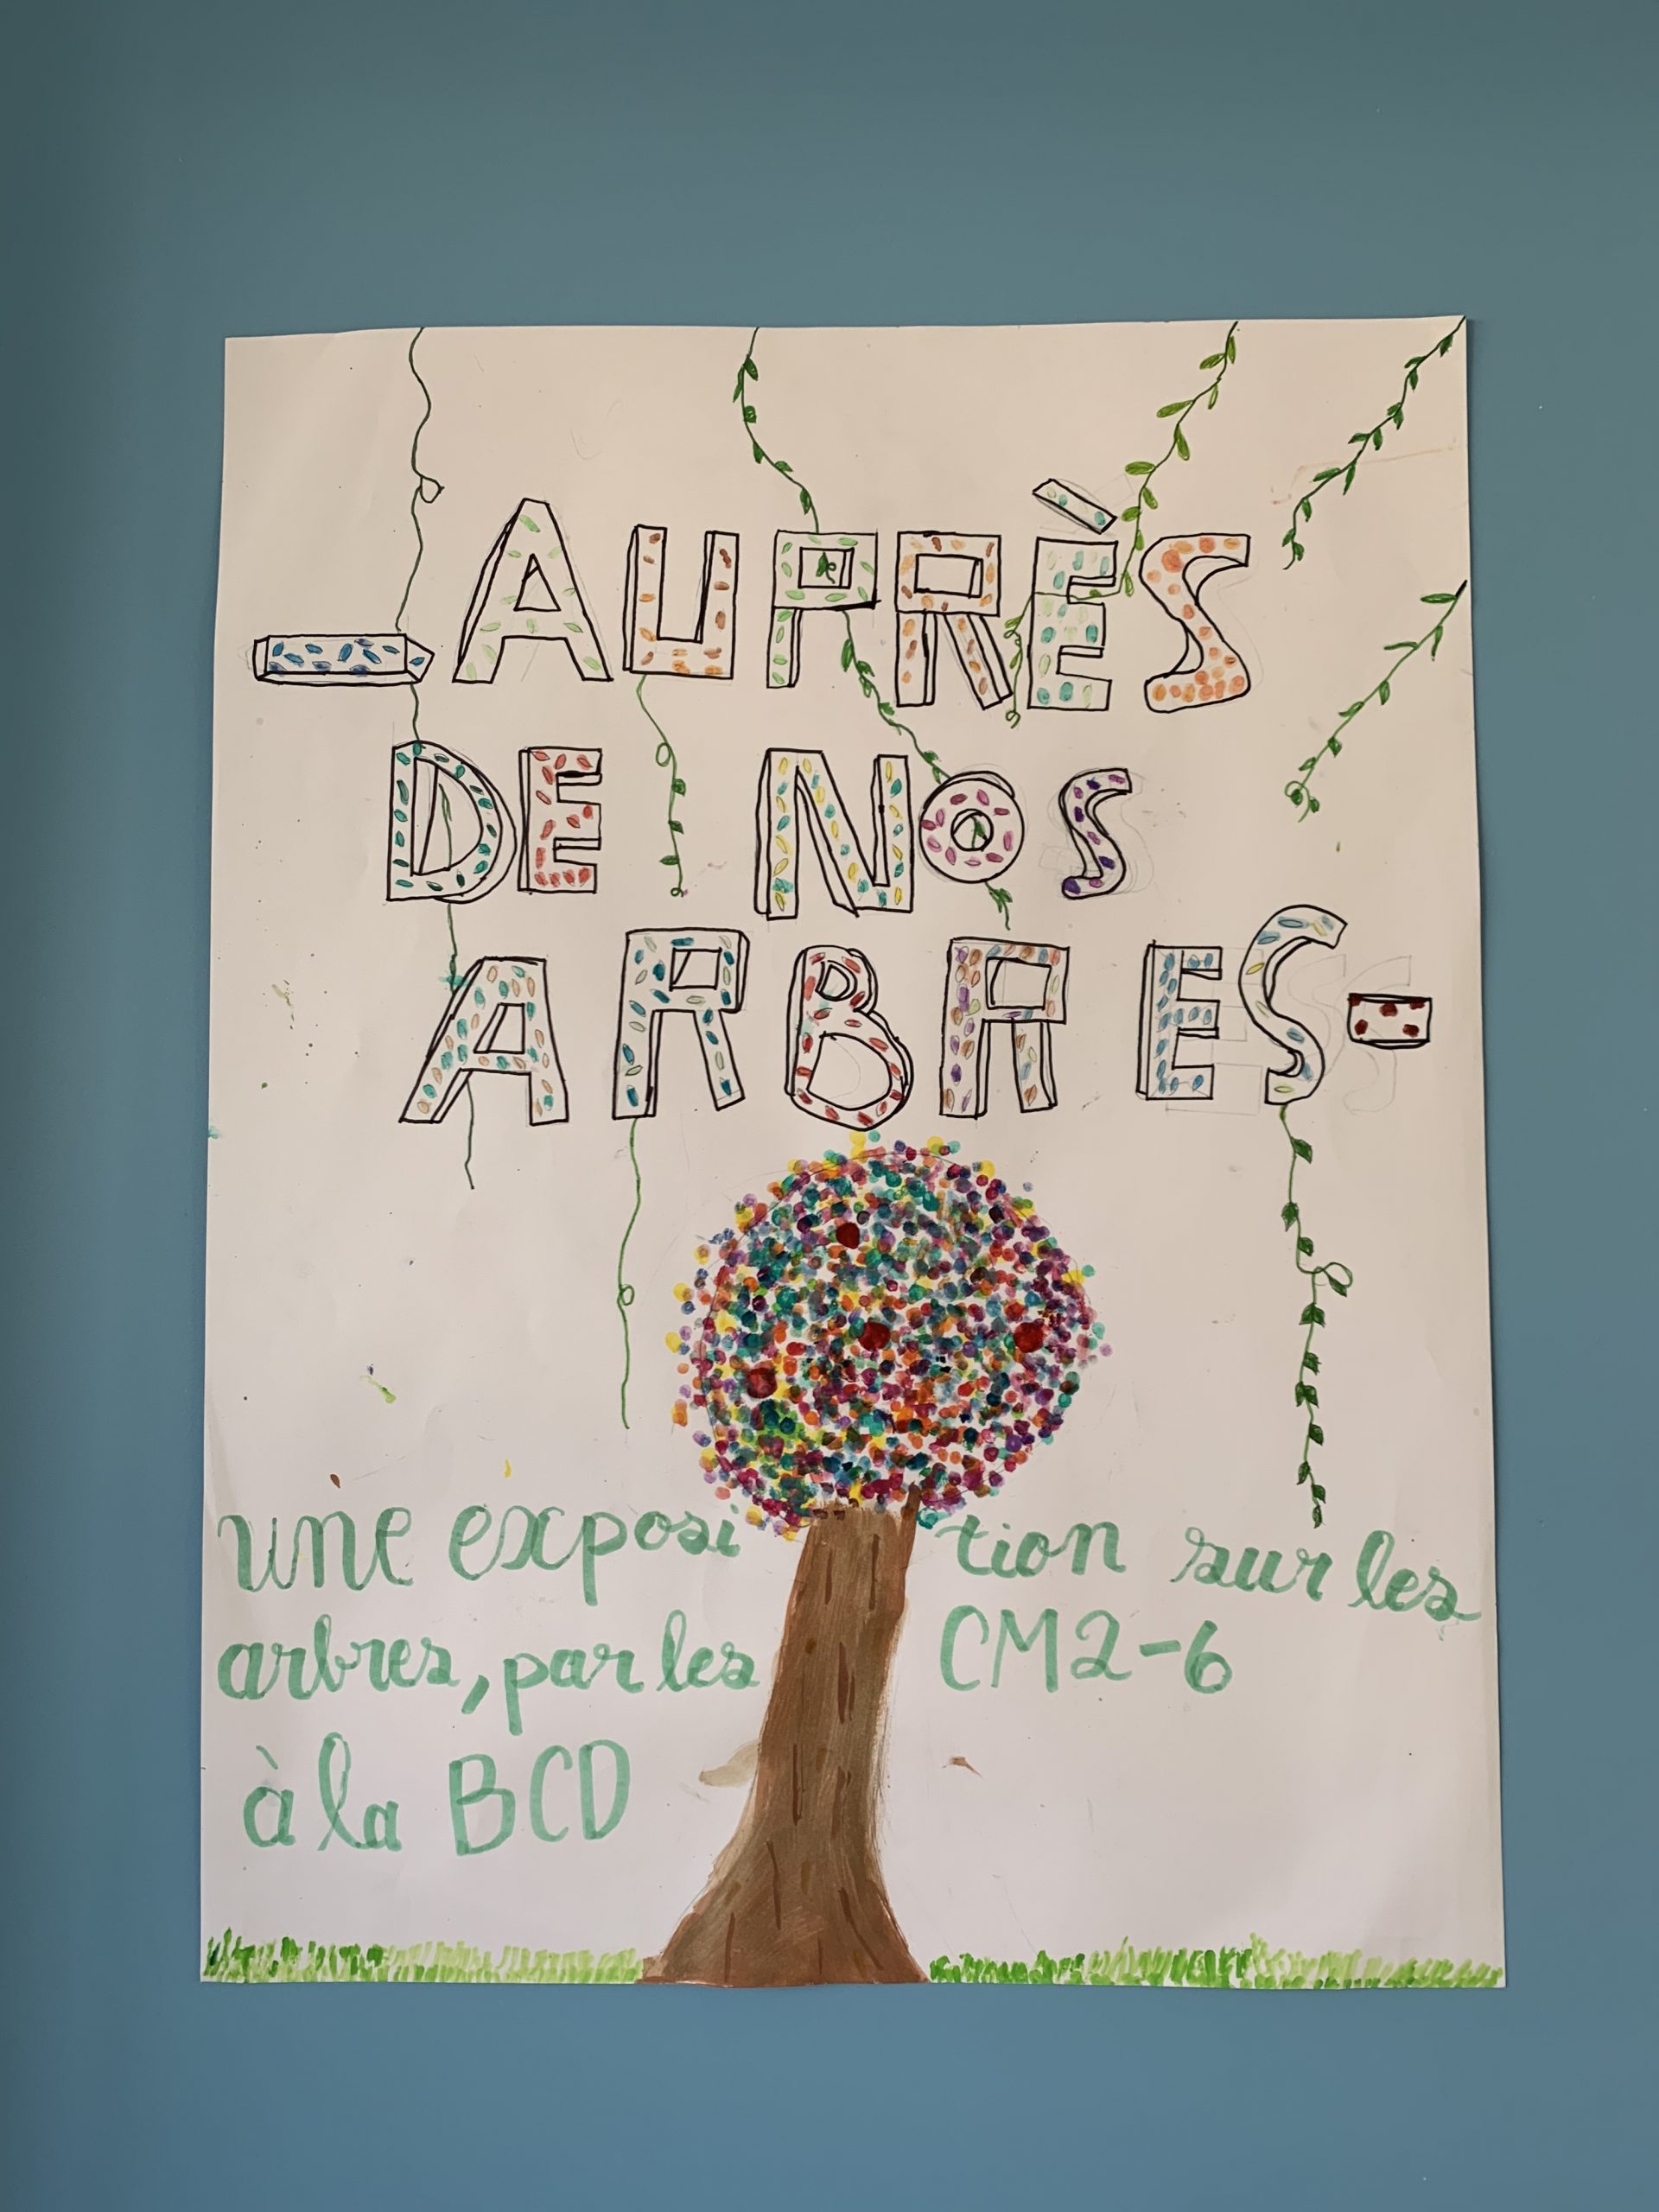 - AUPRÈS
DE NOS
ARBRES -
une exposition sur les
arbres, par les CM2-6
à la BCD